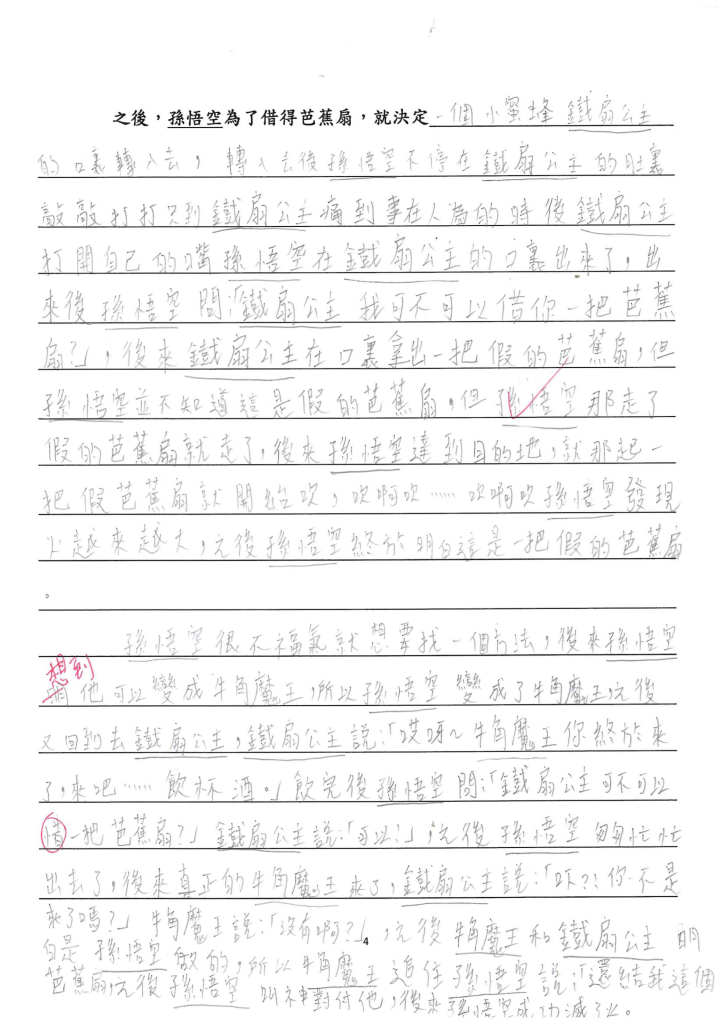 之後，孫悟空為了借得芭蕉扇，就決定一個小蜜蜂鐵扇公主
的口裏轉入去，轉入去後孫悟空不停在鐵扇公主的肚裏
敲敲打打只到鐵扇公主痛到事在人為的時後鐵扇公主
打開自己的嘴孫悟空在鐵扇公主的口裏出來了，出
來後孫悟空問：「鐵扇公主我可不可以借你一把芭蕉
扇？」，後來鐵扇公主在口裏拿出一把假的芭蕉扇，但
孫悟空並不知道這是假的芭蕉扇，但孫悟空那走了
假的芭蕉扇就走了，後來孫悟空達到目的地，就那起一
把假芭蕉扇就開給吹，吹啊吹……吹啊吹孫悟空發現
火越來越大，之後孫悟空終於明白這是一把假的芭蕉扇
。
孫悟空很不福氣就想要找一個方法，後來孫悟空
想到他可以變成牛角魔王，所以孫悟空變成了牛角魔王，之後
又回到去鐵扇公主，鐵扇公主說：「哎呀～牛角魔王你終於來
了，來吧……飲杯酒。」飲完後孫悟空問：「鐵扇公主可不可以
借一把芭蕉扇？」鐵扇公主說：「可以？」，之後孫悟空匆匆忙忙
出去了，後來真正的牛角魔王來了，鐵扇公主說：「吓？！你不是
來了嗎？」牛角魔王說：「沒有啊？」，之後牛角魔王和鐵扇公主明
白是孫悟空做的，所以牛角魔王追住孫悟空說：「還結我這個
芭蕉扇，之後孫悟空叫神對付他，後來孫悟空成功滅了火。
4